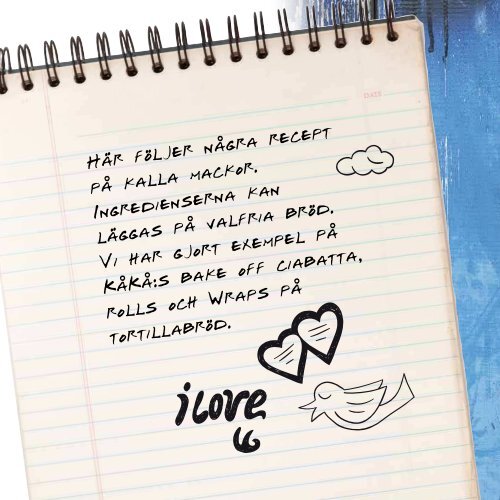 DATE
Här följer några recept
på kalla mackor.
Ingredienserna kan
läggas på valfria bröd.
Vi har gjort exempel på
Kåkå:s bake off ciabatta,
rolls och wraps på
tortillabröd.
i love